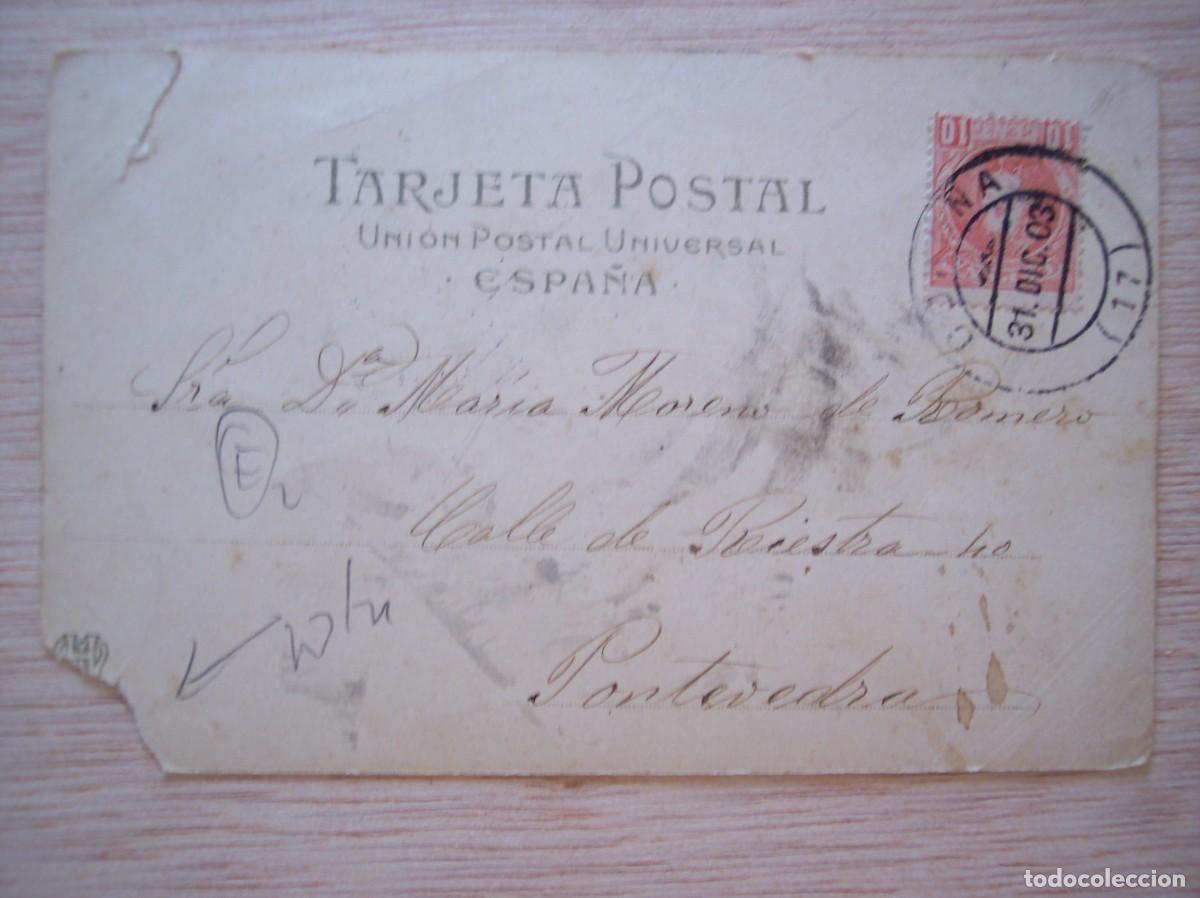 TARJETA POSTAL
UNIÓN POSTAL UNIVERSAL
· ESPAÑA ·
10 10
31. DIC. 03
(17)
Sra Dª María Moreno de Romero
E
Calle de Riestra 40
Pontevedra
todocoleccion